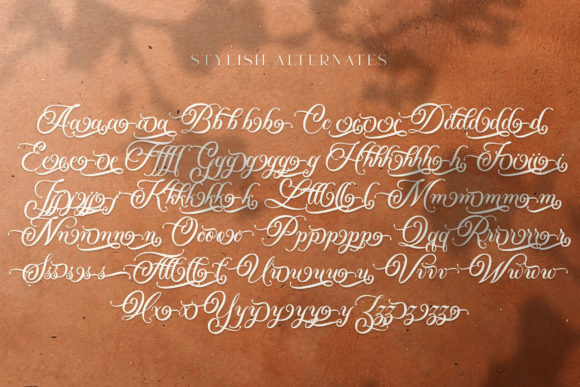 STYLISH ALTERNATES
Aaaaaaa Bbbbbb Cccccc Ddddddd
Eeeeeee Fffff Ggggggg Hhhhhhh Iiiii
Jjjjjj Kkkkkkk Llllll Mmmmmmm
Nnnnnnn Ooooo Ppppppp Qqq Rrrrrrr
Sssssss Tttttt Uuuuuuu Vvvv Wwww
Xxx Yyyyyyyy Zzzzzzz